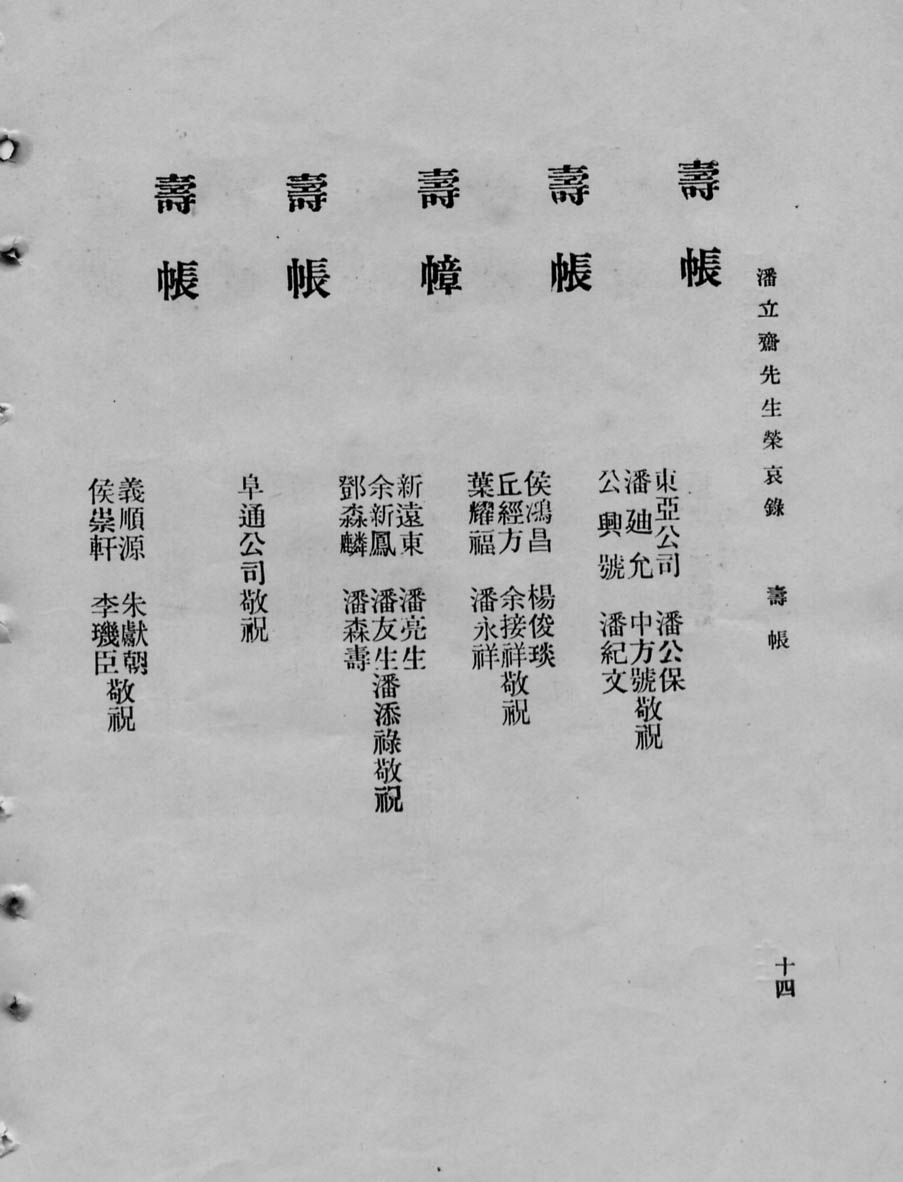 潘立齋先生榮哀錄　壽帳
十四
壽帳
東亞公司　潘公保
潘廸允　中方號敬祝
公興號　潘紀文
壽帳
侯鴻昌　楊俊琰
丘經方　余接祥敬祝
葉耀福　潘永祥
壽幛
新遠東　潘亮生
余新鳳　潘友生潘添祿敬祝
鄧森麟　潘森壽
壽帳
阜通公司敬祝
壽帳
義順源　朱獻朝
侯崇軒　李璣臣敬祝